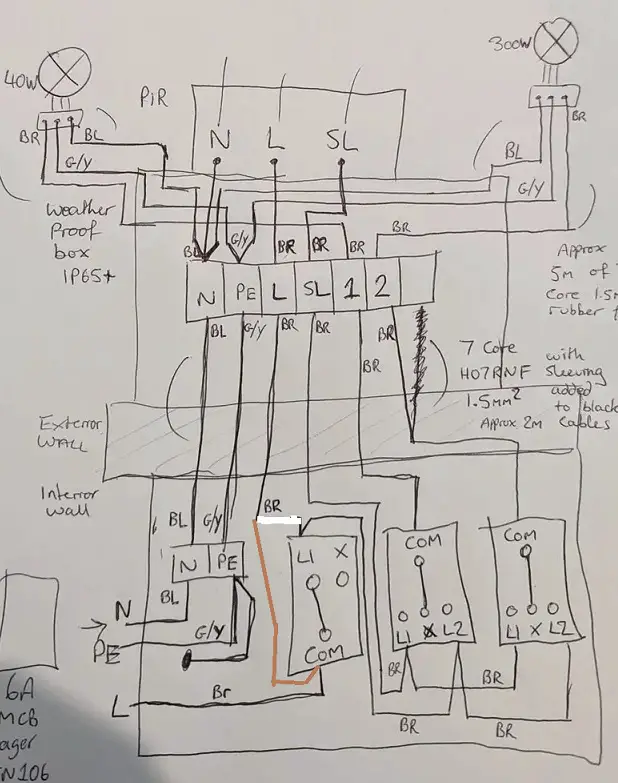 40W
300W
PiR
BR
BL
G/Y
N
L
SL
BL
G/Y
BR
Weather
Proof
box
IP65+
BL
G/Y
BR
BR
BR
BR
Approx
5m of
Core
rubber
N
PE
L
SL
1
2
BL
G/Y
BR
BR
BR
BR
7 Core
H07RNF
1.5mm²
Approx 2m
with
sleeving
added
to black
Cables
Exterior
WALL
Interior
Wall
BL
G/Y
BR
N
PE
L1
X
COM
COM
COM
L1
X
L2
L1
X
L2
N
BL
PE
G/Y
L
Br
BR
BR
BR
BR
6A
MCB